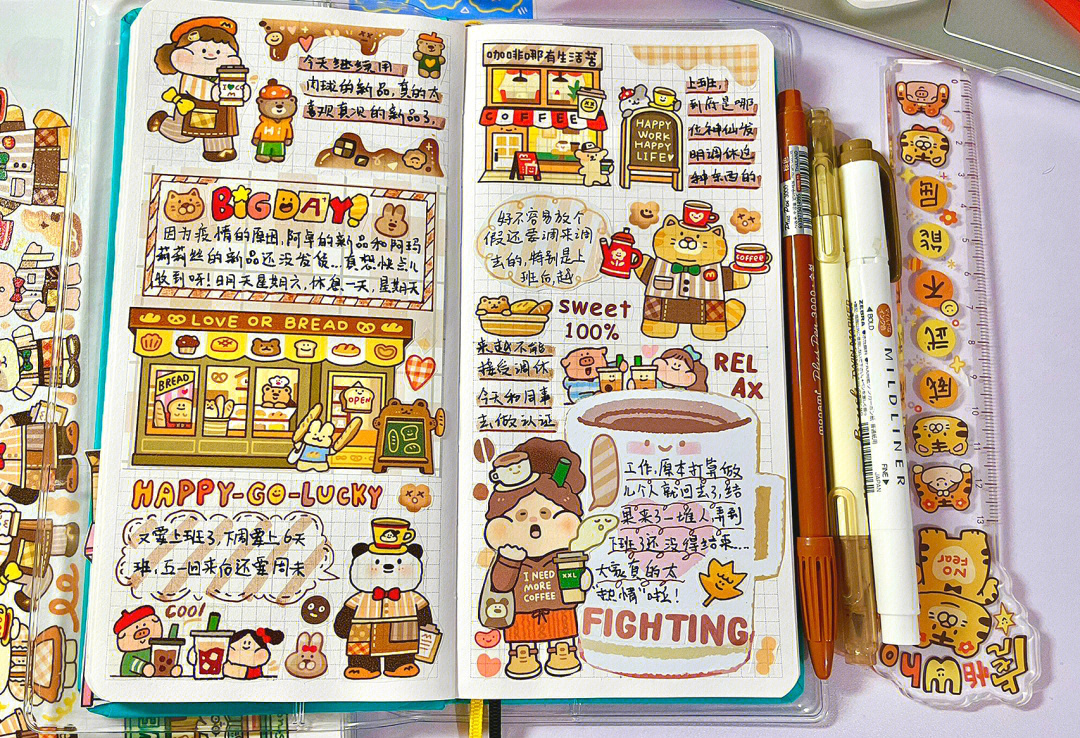 今天继续用
肉球的新品,真的太
喜欢真况的新品了,
BIG DAY!
因为疫情的原因,阿卓的新品和阿玛
莉莉丝的新品还没发货...真想快点儿
收到呀!明天星期六,休息一天,星期天
LOVE OR BREAD
BREAD
OPEN
HAPPY-GO-LUCKY
又要上班了,下周要上6天
班,五一回来后还要周末
COOL
咖啡哪有生活苦
COFFEE
HAPPY
WORK
HAPPY
LIFE
上班,
到底是哪
位神仙发
明调休这
种东西的
好不容易放个
假还要调来调
去的,特别是上
班后,越
COFFEE
sweet
100%
来越不能
接受调休
今天和同事
去做认证
REL
AX
工作,原本打算做
几个人就回去了,结
果来了一堆人,弄到
下班了还没得结束...
大家真的太
"热情"啦!
I NEED
MORE
COFFEE
XXL
FIGHTING
MILDLINER
ZEBRA
BOLD
FINE
JAPAN
0
1
2
3
4
5
6
7
8
9
10
11
12
13
困
能
不
武
威
NO
Fear